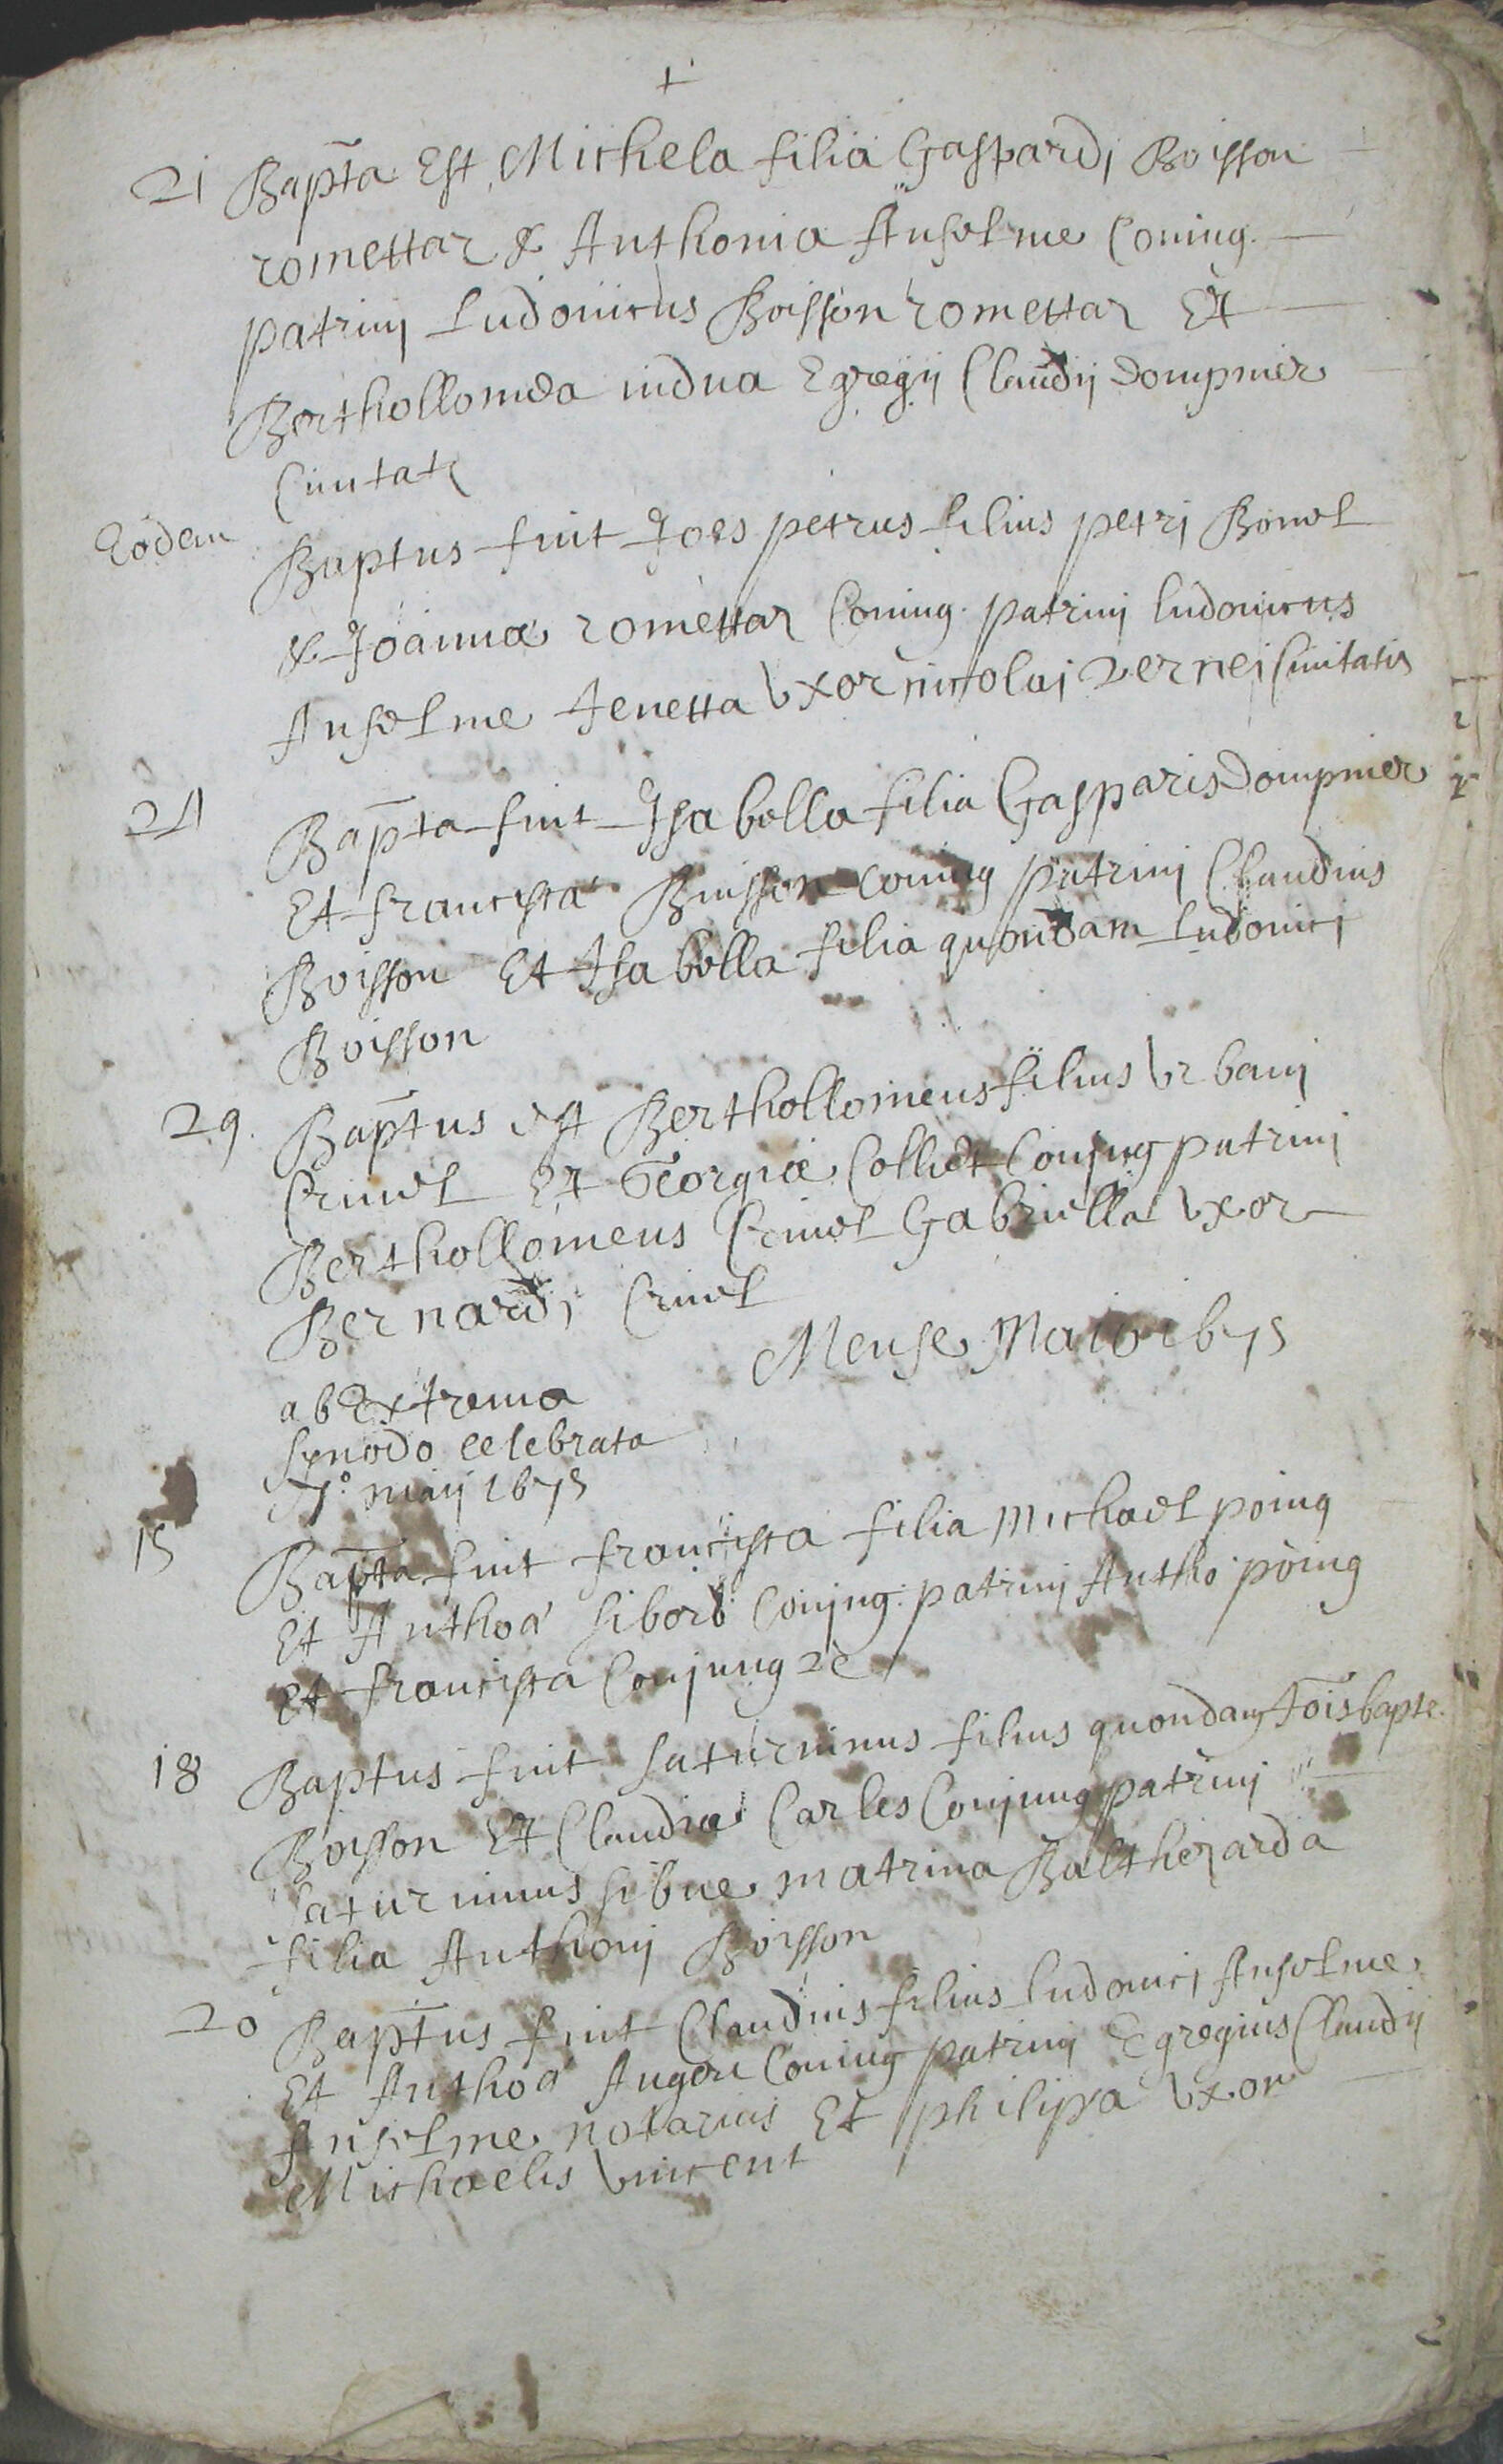 +
21 Bapta Est Michela filia Gaspardj Boisson
romettaz & Anthonia Anselme Coniug.
patrinj Ludouicus Boisson romettaz Et
Berthollomea uidua Egregij Claudij Dompnier
Ciuitatis
Eodem Baptus fuit Joes petrus filius petrj Bonel
& Joannæ romettaz Coniug. patrinj ludouicus
Anselme Jenetta Vxor nicolaj Vernei Ciuitatis
24 Bapta fuit Isabella filia Gasparis Dompnier
Et francisca Buisson Coniug patrinj Claudius
Boisson Et Isabella filia quondam Ludouicj
Boisson
29. Baptus est Berthollomeus filius Vrbanj
Criuel Et Georgiæ Colliet Conjug patrinj
Berthollomeus Criuel Gabriella Vxor
Bernardj Criuel
Mense Maio 1675
ab Extrema
Synodo celebrata
7° maij 1675
15 Bapta fuit francisca filia Michael poing
Et Anthoa sibord Conjug: patrinj Antho poing
Et francisca Conjung
18 Baptus fuit Saturninus filius quondam Jois bapte.
Boisson Et Claudiæ Carles Conjung patrinj
Saturninus sibue matrina Balthezarda
filia Anthonj Boisson
20 Baptus fuit Claudius filius Ludouicj Anselme
Et Anthoa Auger Coniug patrinj Egregius Claudij
Anselme notarius Et philipa Vxor
Michaelis Vincent